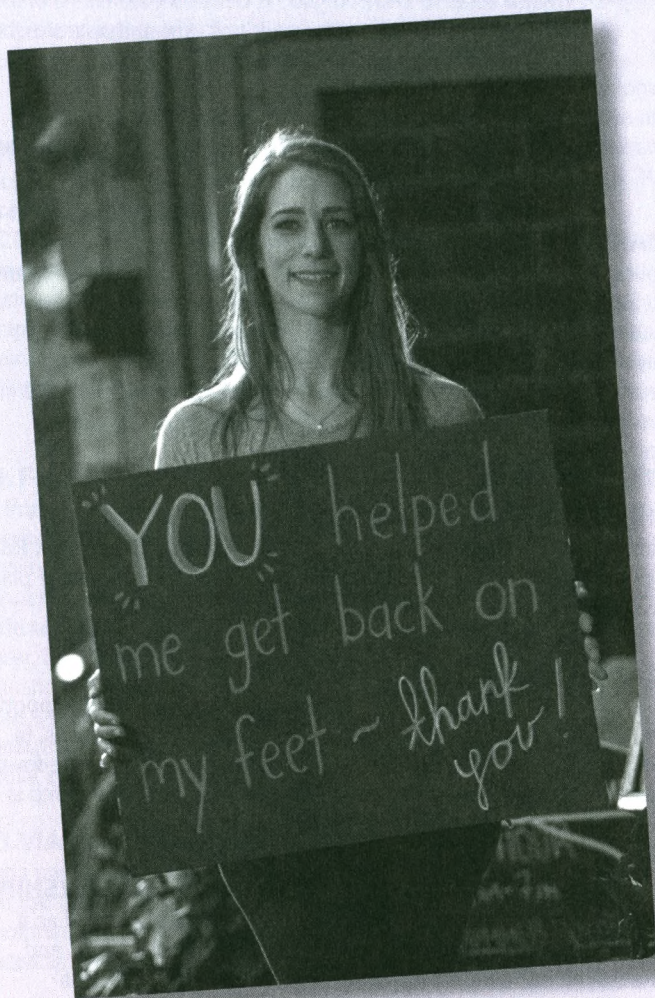 YOU helped
me get back on
my feet ~ thank
you!